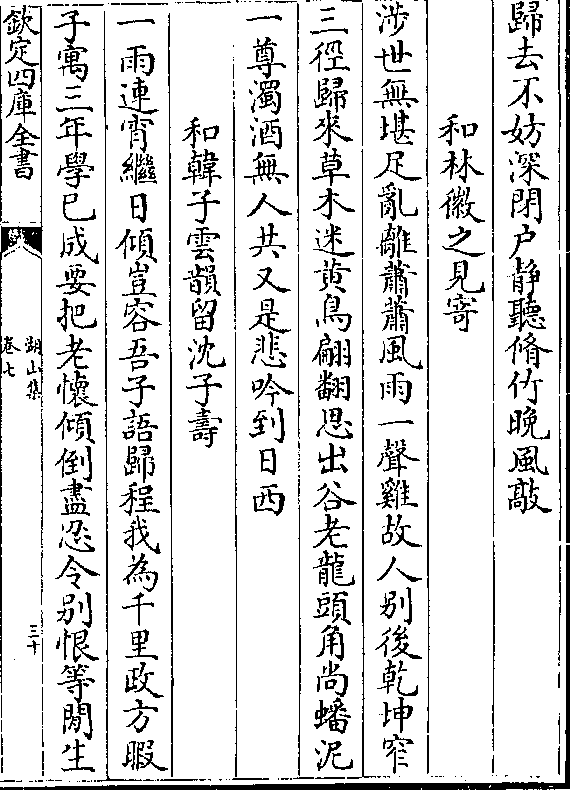 歸去不妨深閉户静聽脩竹晚風敲
和林徽之見寄
涉世無堪足亂離蕭蕭風雨一聲雞故人别後乾坤窄
三徑歸來草木迷黄鳥翩翻思出谷老龍頭角尚蟠泥
一尊濁酒無人共又是悲吟到日西
和韓子雲韻留沈子壽
一雨連宵繼日傾豈容吾子語歸程我為千里政方暇
子寓三年學已成要把老懷傾倒盡忍令别恨等閒生
欽定四庫全書
湖山集
卷七
三十